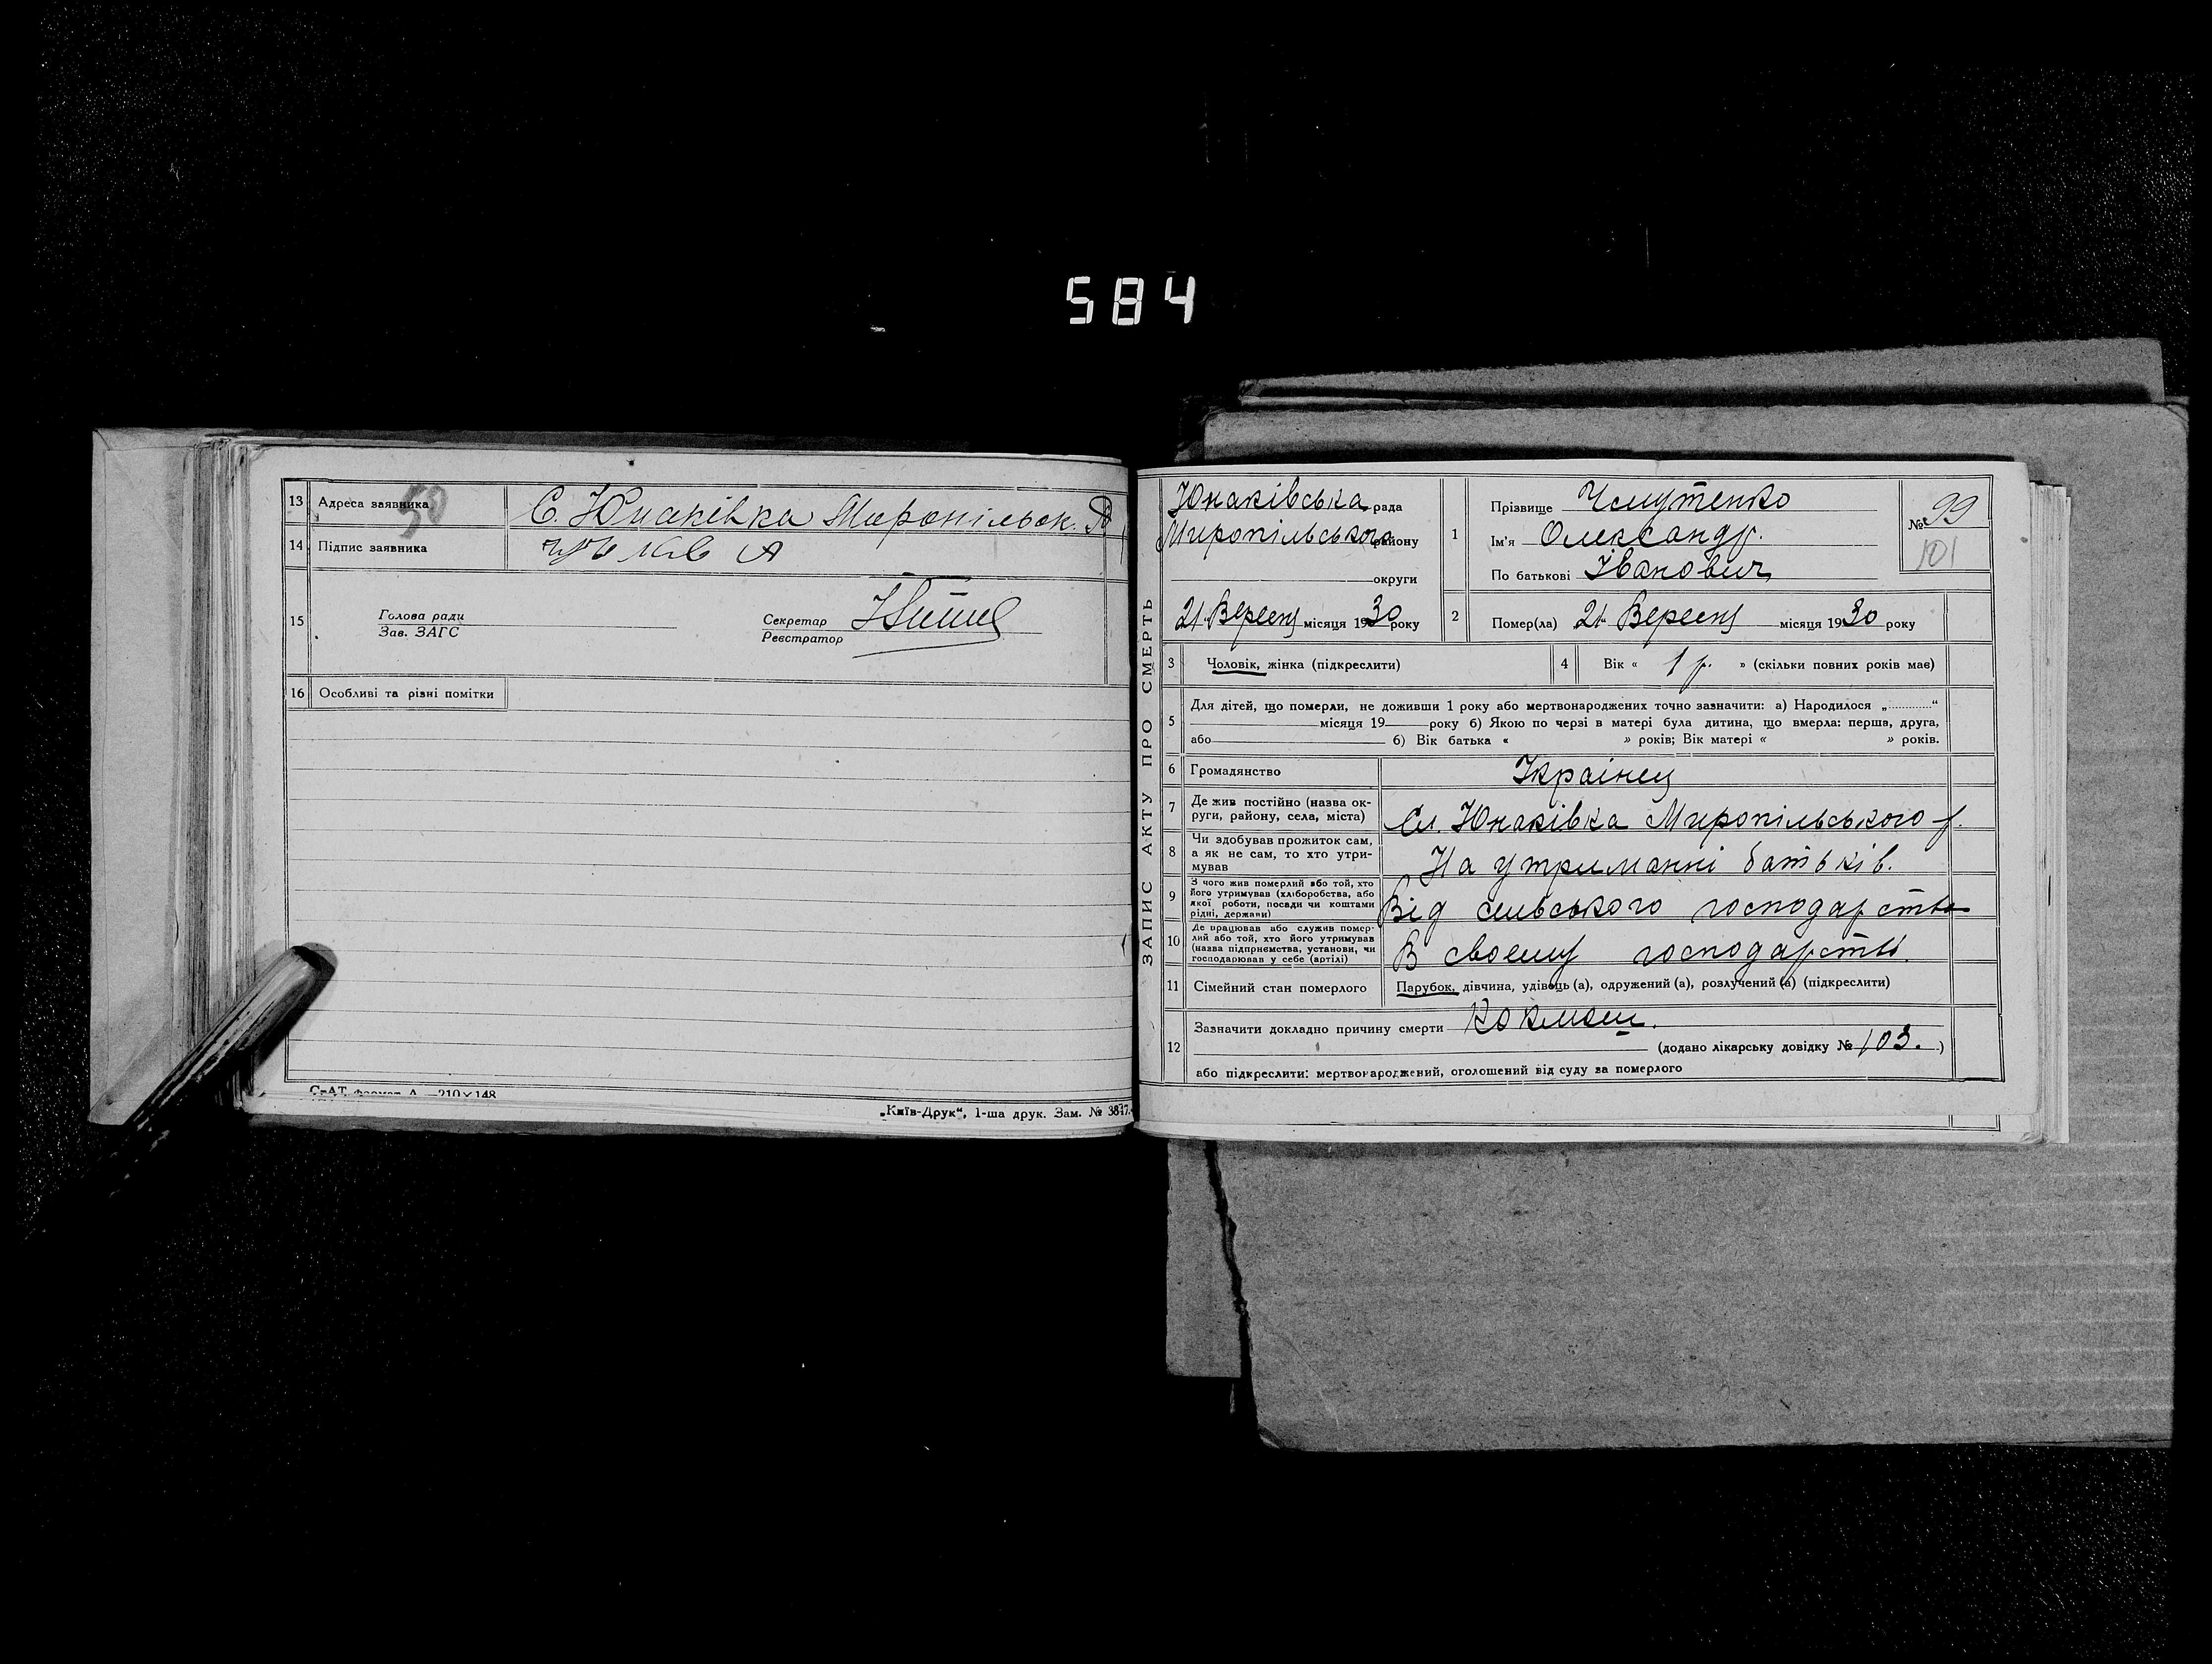 584
13 Адреса заявника С. Юнаківка Миропільськ. Р
50
14 Підпис заявника
15 Голова ради
Зав. ЗАГС
Секретар
Реєстратор
16 Особливі та різні помітки
СтАТ формат А —210×148
„Київ-Друк“, 1-ша друк. Зам. № 3847.
ЗАПИС АКТУ ПРО СМЕРТЬ
Юнаківська рада
Миропільського району
округи
21 Вересня місяця 1930 року
1 Прізвище Чмутенко
Ім'я Олександр.
По батькові Іванович
№ 99
101
2 Помер(ла) 21 Вересня місяця 1930 року
3 Чоловік, жінка (підкреслити)
4 Вік « 1 р. » (скільки повних років має)
5 Для дітей, що померли, не доживши 1 року або мертвонароджених точно зазначити: а) Народилося „ “
місяця 19 року б) Якою по черзі в матері була дитина, що вмерла: перша, друга,
або б) Вік батька « » років; Вік матері « » років.
6 Громадянство Українец
7 Де жив постійно (назва ок-
руги, району, села, міста) Сл. Юнаківка Миропільського р.
8 Чи здобував прожиток сам,
а як не сам, то хто утри-
мував На утриманні батьків.
9 З чого жив померлий або той, хто
його утримував (хліборобства, або
якої роботи, посади чи коштами
рідні, держави) Від сільського господарства
10 Де працював або служив помер-
лий або той, хто його утримував
(назва підприємства, установи, чи
господарював у себе (артілі) В своему господарстві.
11 Сімейний стан померлого Парубок, дівчина, удівець (а), одружений (а), розлучений (а) (підкреслити)
12 Зазначити докладно причину смерти Коклюш.
(додано лікарську довідку № 103.)
або підкреслити: мертвонароджений, оголошений від суду за померлого